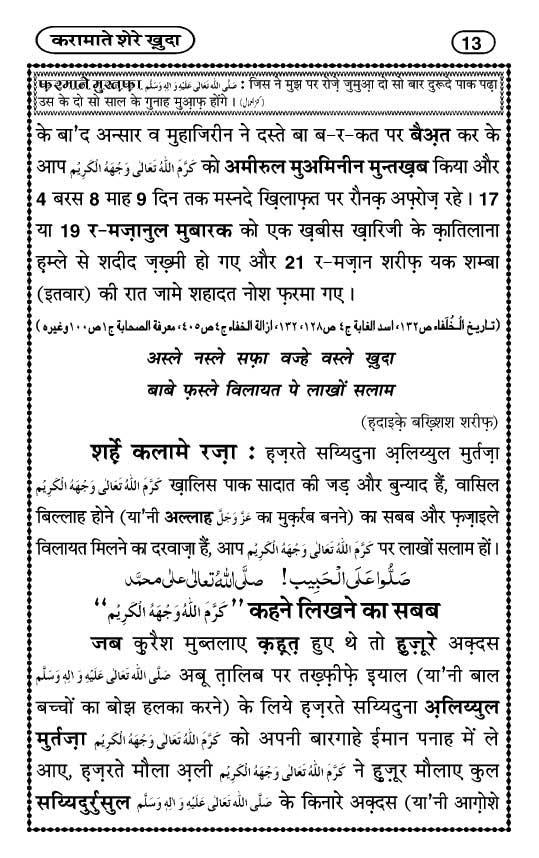 करामाते शेरे ख़ुदा
13
फ़रमाने मुस्तफ़ा صَلَّى اللهُ تَعَالٰى عَلَيْهِ وَاٰلِهٖ وَسَلَّم : जिस ने मुझ पर रोज़े जुमुआ़ दो सो बार दुरूदे पाक पढ़ा
उस के दो सो साल के गुनाह मुआ़फ़ होंगे ।
के बा'द अन्सार व मुहाजिरीन ने दस्ते बा ब-र-कत पर बैअ़त कर के
आप كَرَّمَ اللهُ تَعَالٰى وَجْهَهُ الْكَرِيْم को अमीरुल मुअमिनीन मुन्तख़ब किया और
4 बरस 8 माह 9 दिन तक मस्नदे ख़िलाफ़त पर रौनक़ अफ़्रोज़ रहे । 17
या 19 र-मज़ानुल मुबारक को एक ख़बीस ख़ारिजी के क़ातिलाना
हम्ले से शदीद ज़ख़्मी हो गए और 21 र-मज़ान शरीफ़ यक शम्बा
(इतवार) की रात जामे शहादत नोश फ़रमा गए ।
(تاريخ الْخُلَفاء ص١٣٢، اسد الغابة ج٤ ص١٢٨،١٣٢، ازالة الخفاء ج٤ ص٤٠٥، معرفة الصحابة ج١ ص١٠٠ وغيره)
अस्ले नस्ले सफ़ा वज्हे वस्ले ख़ुदा
बाबे फ़स्ले विलायत पे लाखों सलाम
(हदाइके बख़्शिश शरीफ़)
शर्हे कलामे रज़ा : हज़रते सय्यिदुना अ़लिय्युल मुर्तज़ा
كَرَّمَ اللهُ تَعَالٰى وَجْهَهُ الْكَرِيْم ख़ालिस पाक सादात की जड़ और बुन्याद हैं, वासिल
बिल्लाह होने (या'नी अल्लाह عَزَّوَجَلَّ का मुक़र्रब बनने) का सबब और फ़ज़ाइले
विलायत मिलने का दरवाज़ा हैं, आप كَرَّمَ اللهُ تَعَالٰى وَجْهَهُ الْكَرِيْم पर लाखों सलाम हों।
صَلُّوا عَلَى الْحَبِيب! صلَّى اللهُ تعالٰى على محمَّد
“كَرَّمَ اللهُ وَجْهَهُ الْكَرِيْم” कहने लिखने का सबब
जब कुरैश मुब्तलाए क़हूत़ हुए थे तो हुज़ूरे अक़्दस
صَلَّى اللهُ تَعَالٰى عَلَيْهِ وَاٰلِهٖ وَسَلَّم अबू त़ालिब पर तख़्फ़ीफ़े इयाल (या'नी बाल
बच्चों का बोझ हलका करने) के लिये हज़रते सय्यिदुना अ़लिय्युल
मुर्तज़ा كَرَّمَ اللهُ تَعَالٰى وَجْهَهُ الْكَرِيْم को अपनी बारगाहे ईमान पनाह में ले
आए, हज़रते मौला अ़ली كَرَّمَ اللهُ تَعَالٰى وَجْهَهُ الْكَرِيْم ने हुज़ूर मौलाए कुल
सय्यिदुर्रुसुल صَلَّى اللهُ تَعَالٰى عَلَيْهِ وَاٰلِهٖ وَسَلَّم के किनारे अक़्दस (या'नी आग़ोशे